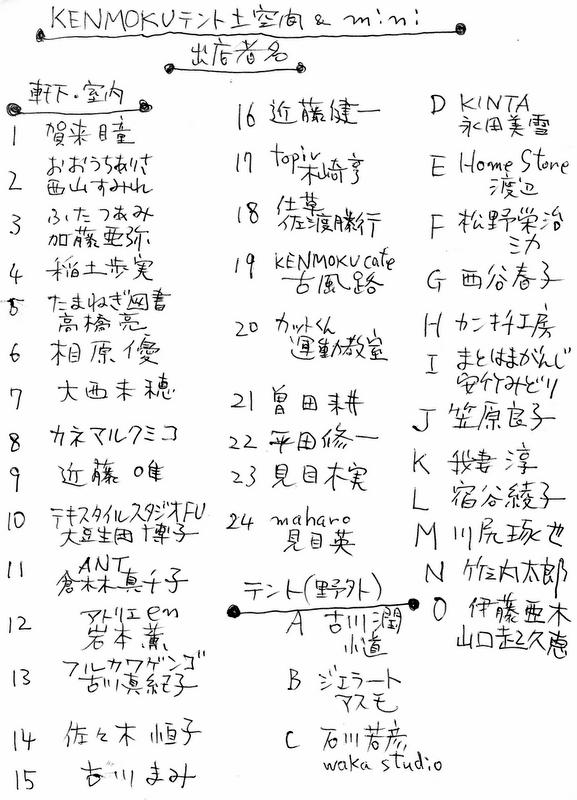 KENMOKUテント土空间 & mini
出店者名
軒下・室内
1 賀来 瞳
2 おおうちありさ
西山すみれ
3 ふたつあみ
加藤亜弥
4 稲土歩実
5 たまねぎ図書
高橋亮
6 相原優
7 大西未穂
8 カネマルクミコ
9 近藤 唯
10 テキスタイルスタジオFU
大豆生田博子
11 ANT
倉林真千子
12 アトリエen
岩本薫
13 フルカワゲンゴ
古川真紀子
14 佐々木恒子
15 古川まみ
16 近藤健一
17 topiv
木崎亨
18 仕草
佐渡勝行
19 KENMOKU cafe
古風路
20 カットくん
運動教室
21 曽田耕
22 平田修一
23 見目木実
24 maharo
見目英
テント(野外)
A 古川潤
小道
B ジェラート
アスモ
C 石川若彦
waka studio
D KINTA
永田美雪
E Home Store
渡辺
F 松野栄治
ミカ
G 西谷春子
H カンキチ工房
I まとはまがんじ
安竹みどり
J 笠原良子
K 我妻 淳
L 宿谷綾子
M 川尻琢也
N 竹之内太郎
O 伊藤亜木
山口起久恵